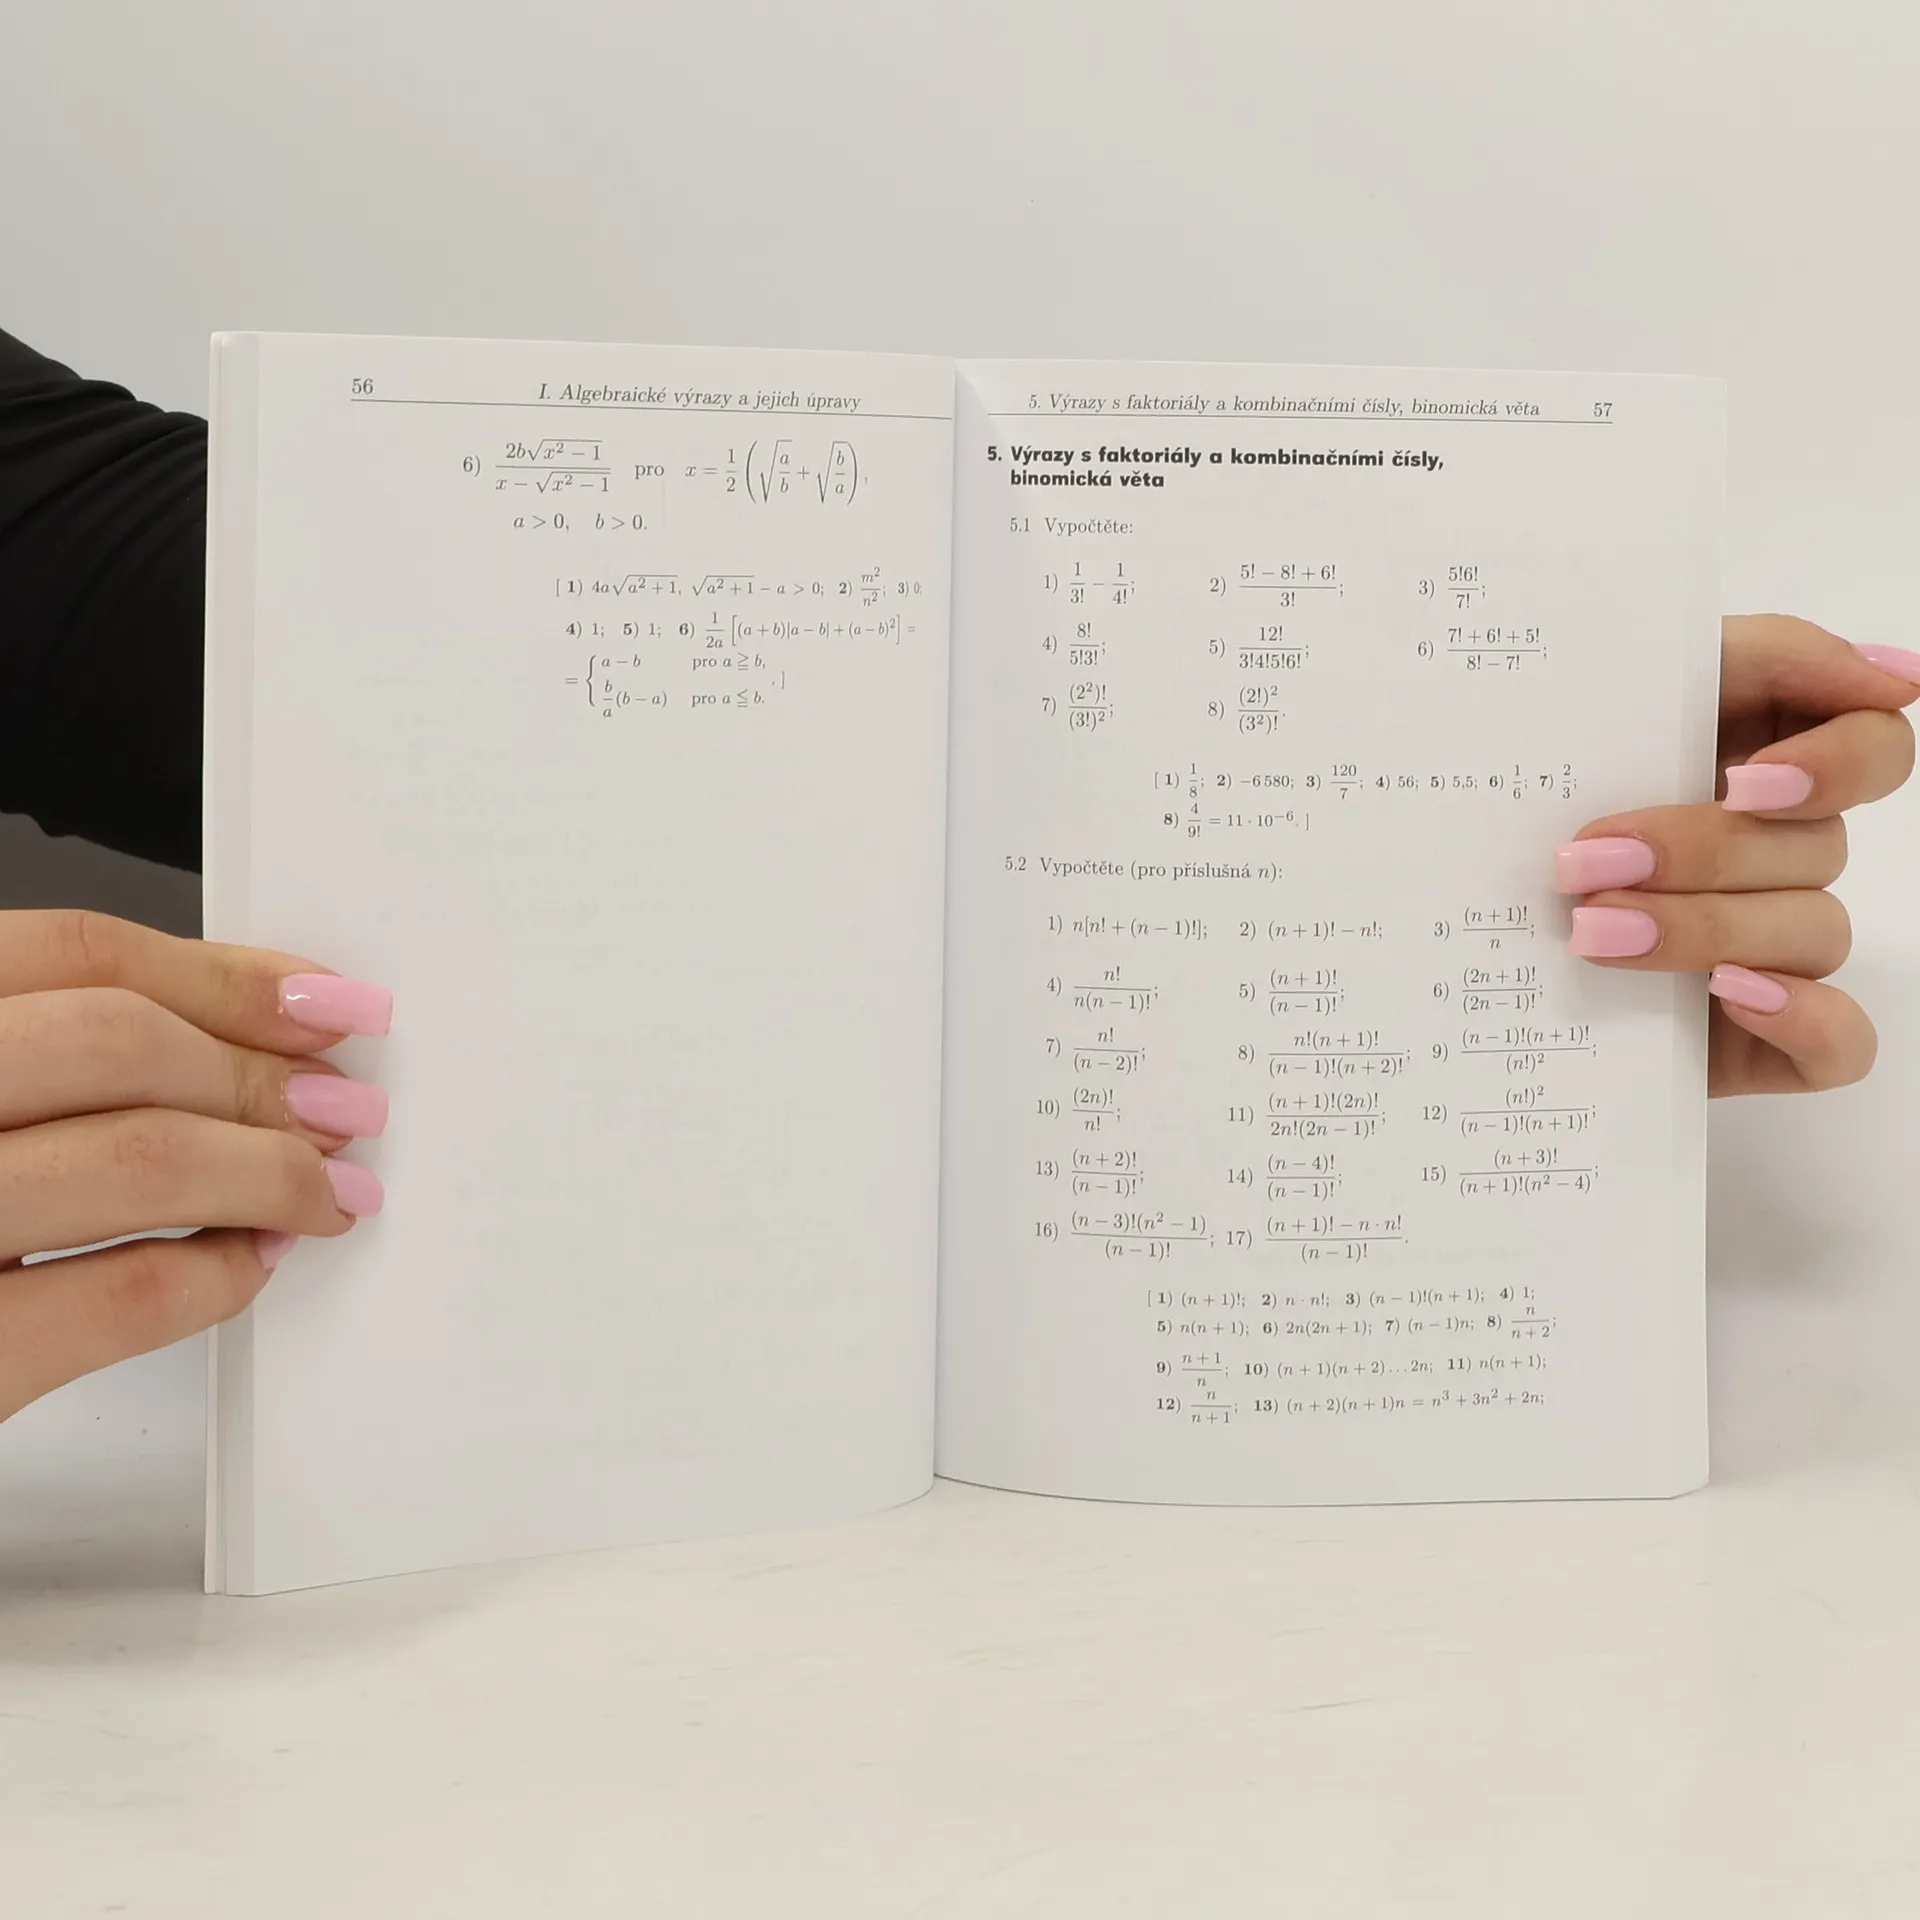 56 I. Algebraické výrazy a jejich úpravy
6) \frac{2b\sqrt{x^2 - 1}}{x - \sqrt{x^2 - 1}} pro x = \frac{1}{2}\left(\sqrt{\frac{a}{b}} + \sqrt{\frac{b}{a}}\right),
a > 0, b > 0.
[ 1) 4a\sqrt{a^2 + 1}, \sqrt{a^2 + 1} - a > 0; 2) \frac{m^2}{n^2}; 3) 0;
4) 1; 5) 1; 6) \frac{1}{2a}[(a + b)|a - b| + (a - b)^2] =
= { a - b pro a ≧ b,
\frac{b}{a}(b - a) pro a ≦ b. . ]
5. Výrazy s faktoriály a kombinačními čísly, binomická věta 57
5. Výrazy s faktoriály a kombinačními čísly,
binomická věta
5.1 Vypočtěte:
1) \frac{1}{3!} - \frac{1}{4!}; 2) \frac{5! - 8! + 6!}{3!}; 3) \frac{5!6!}{7!};
4) \frac{8!}{5!3!}; 5) \frac{12!}{3!4!5!6!}; 6) \frac{7! + 6! + 5!}{8! - 7!};
7) \frac{(2^2)!}{(3!)^2}; 8) \frac{(2!)^2}{(3^2)!}.
[ 1) \frac{1}{8}; 2) -6 580; 3) \frac{120}{7}; 4) 56; 5) 5,5; 6) \frac{1}{6}; 7) \frac{2}{3};
8) \frac{4}{9!} = 11 · 10^{-6}. ]
5.2 Vypočtěte (pro příslušná n):
1) n[n! + (n - 1)!]; 2) (n + 1)! - n!; 3) \frac{(n + 1)!}{n};
4) \frac{n!}{n(n - 1)!}; 5) \frac{(n + 1)!}{(n - 1)!}; 6) \frac{(2n + 1)!}{(2n - 1)!};
7) \frac{n!}{(n - 2)!}; 8) \frac{n!(n + 1)!}{(n - 1)!(n + 2)!}; 9) \frac{(n - 1)!(n + 1)!}{(n!)^2};
10) \frac{(2n)!}{n!}; 11) \frac{(n + 1)!(2n)!}{2n!(2n - 1)!}; 12) \frac{(n!)^2}{(n - 1)!(n + 1)!};
13) \frac{(n + 2)!}{(n - 1)!}; 14) \frac{(n - 4)!}{(n - 1)!}; 15) \frac{(n + 3)!}{(n + 1)!(n^2 - 4)};
16) \frac{(n - 3)!(n^2 - 1)}{(n - 1)!}; 17) \frac{(n + 1)! - n · n!}{(n - 1)!}.
[ 1) (n + 1)!; 2) n · n!; 3) (n - 1)!(n + 1); 4) 1;
5) n(n + 1); 6) 2n(2n + 1); 7) (n - 1)n; 8) \frac{n}{n + 2};
9) \frac{n + 1}{n}; 10) (n + 1)(n + 2)...2n; 11) n(n + 1);
12) \frac{n}{n + 1}; 13) (n + 2)(n + 1)n = n^3 + 3n^2 + 2n;